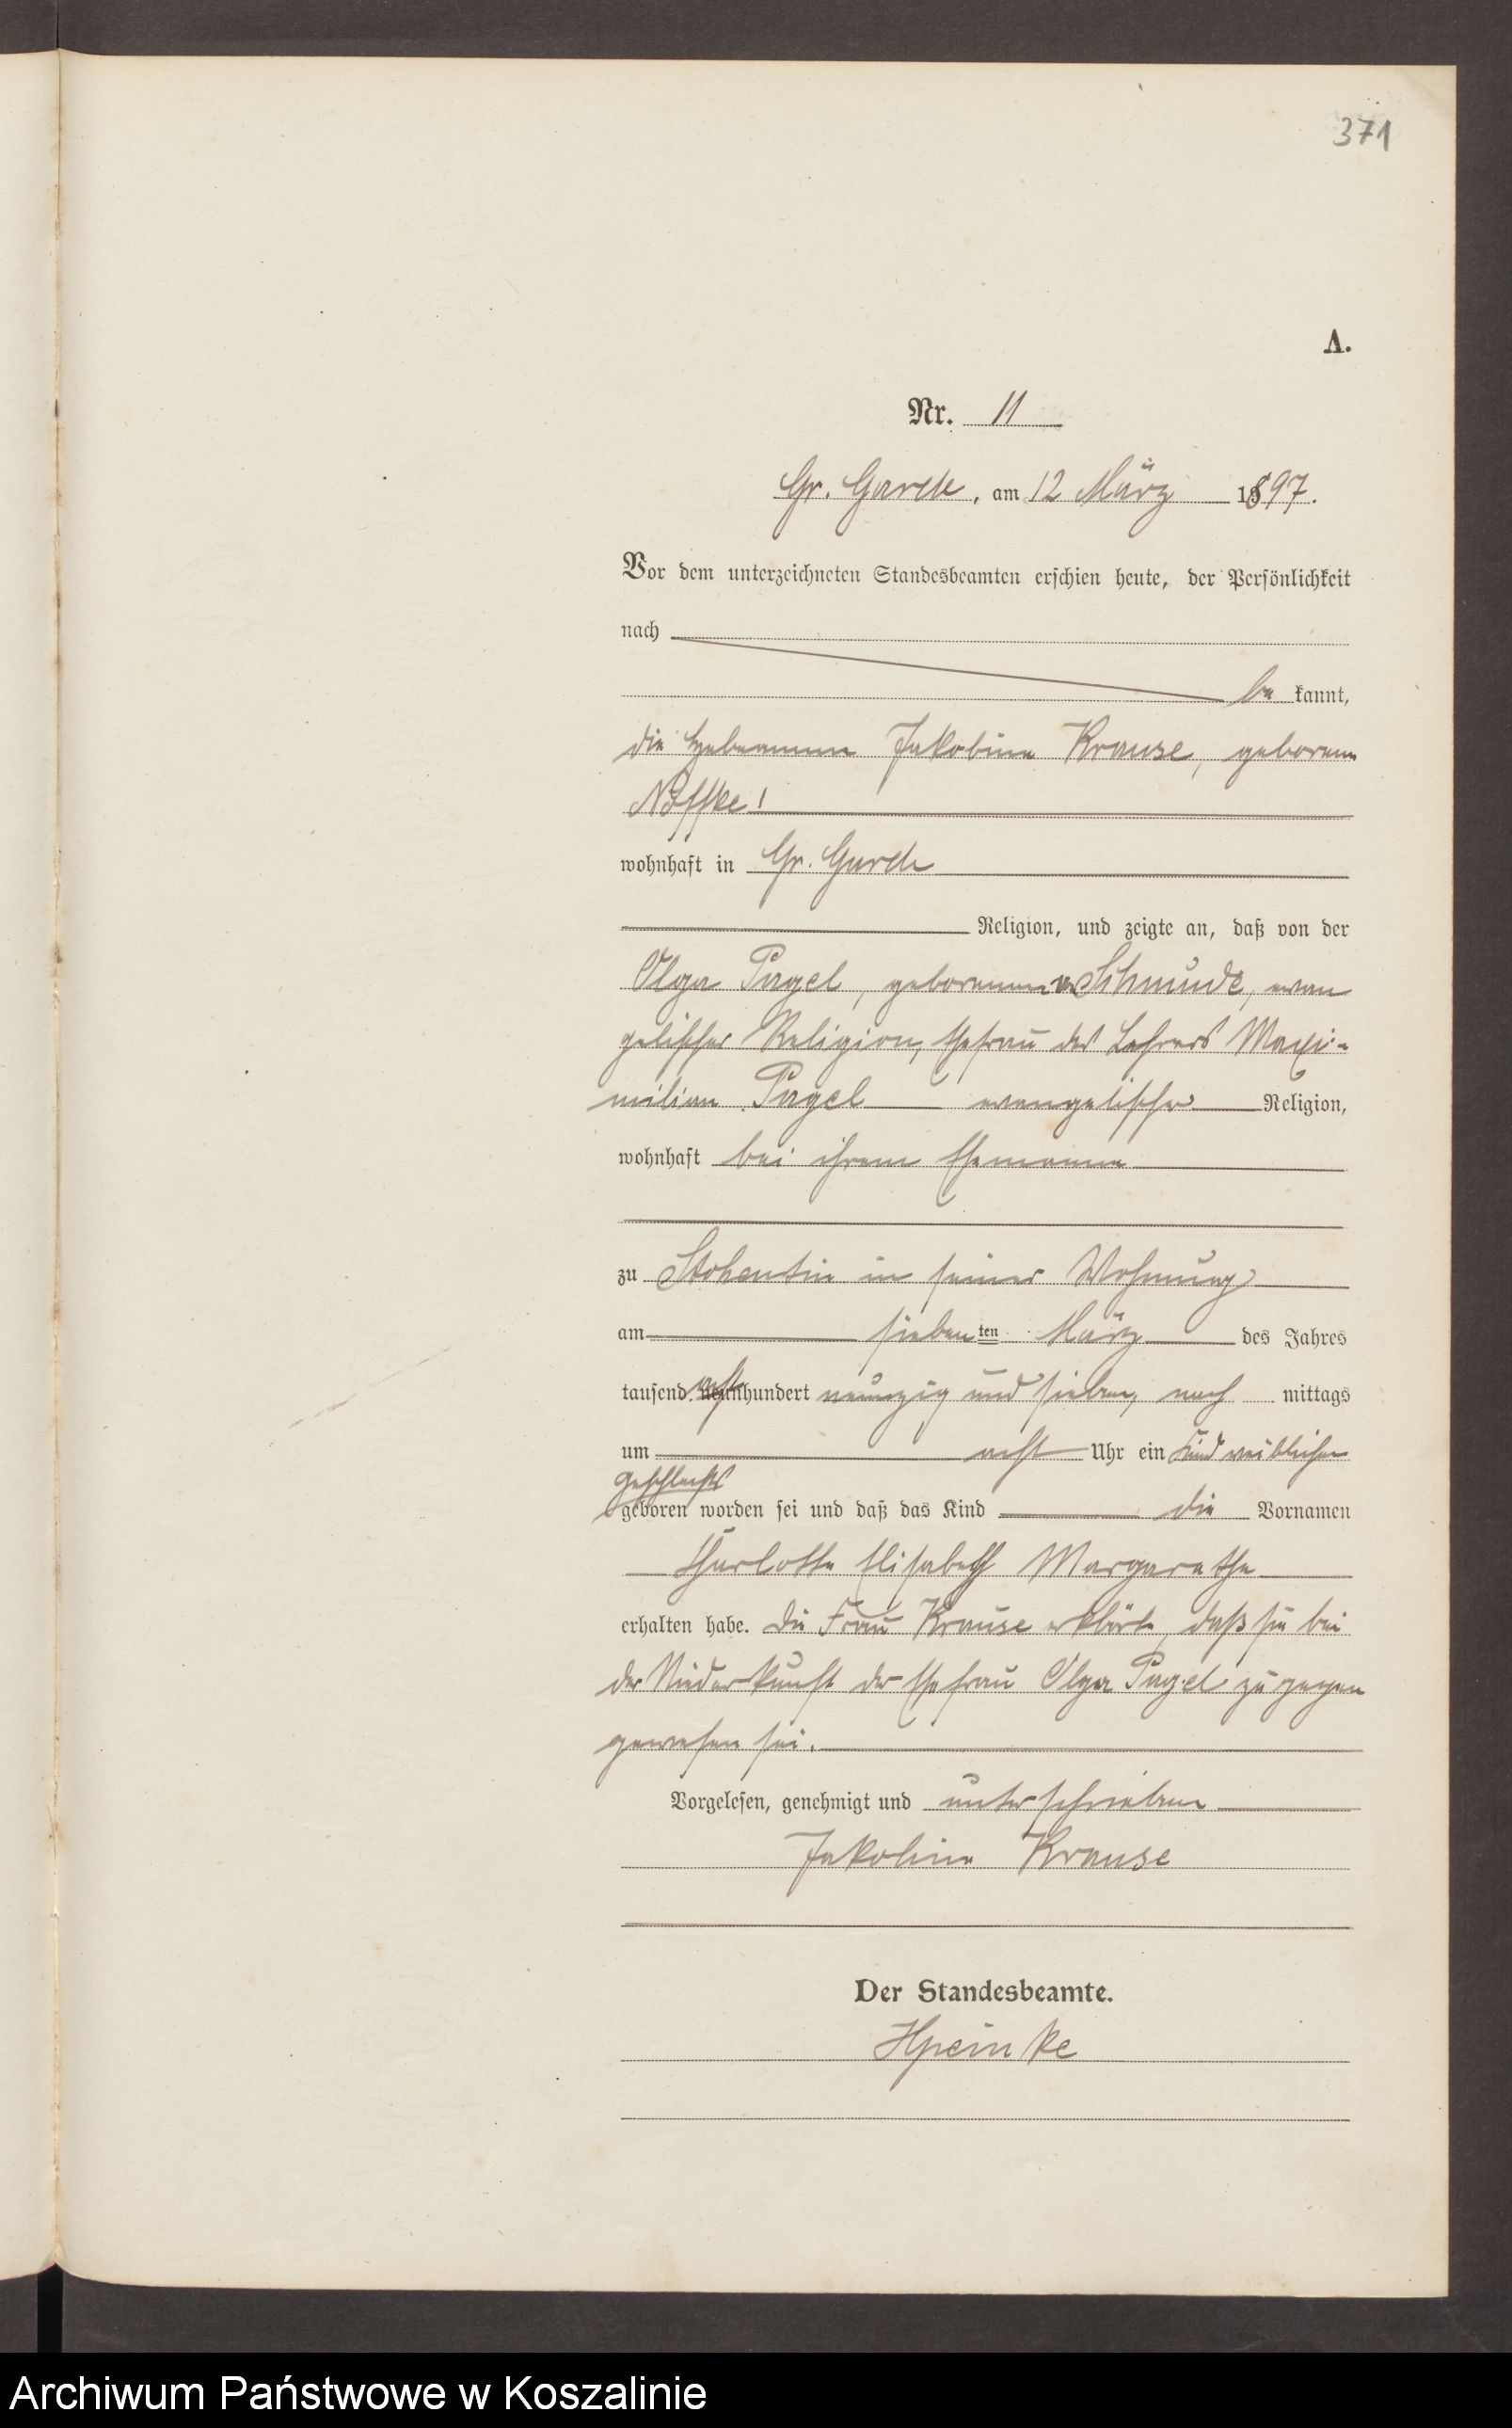 371
A.
Nr. 11
Gr. Garde, am 12 März 1897.
Vor dem unterzeichneten Standesbeamten erschien heute, der Persönlichkeit
nach
be kannt,
die Hebeamme Jakobine Krause, geborene
Nöffke!
wohnhaft in Gr. Garde
Religion, und zeigte an, daß von der
Olga Pagel, geborenen Schmude, evan
gelischer Religion, Ehefrau des Lehrers Maxi-
milian Pagel evangelischer Religion,
wohnhaft bei ihrem Ehemanne
zu Stohentin in seiner Wohnung
am sieben ten März des Jahres
tausend acht hundert neunzig und sieben, nach mittags
um acht Uhr ein Kind weiblichen
Geschlechts
geboren worden sei und daß das Kind die Vornamen
Charlotte Elisabeth Margarethe
erhalten habe. Die Frau Krause erklärte, daß sie bei
der Niederkunft der Ehefrau Olga Pagel zugegen
gewesen sei.
Vorgelesen, genehmigt und unterschrieben
Jakobine Krause
Der Standesbeamte.
Archiwum Państwowe w Koszalinie